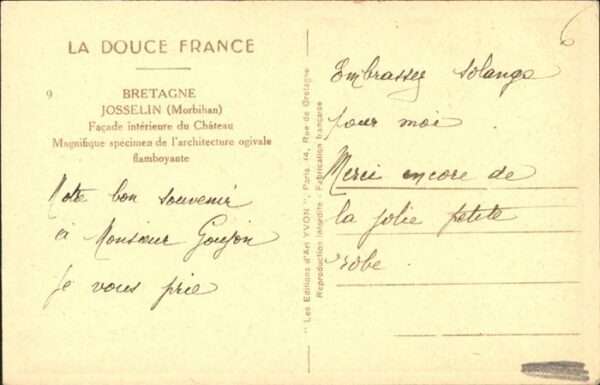 LA DOUCE FRANCE
9
BRETAGNE
JOSSELIN (Morbihan)
Façade intérieure du Château
Magnifique specimen de l'architecture ogivale
flamboyante
Notre bon souvenir
à Monsieur Goujon
je vous prie
"Les Editions d'Art YVON", Paris, 14, Rue de Bretagne
Reproduction interdite. Fabrication française
Embrassez Solange
pour moi.
Merci encore de
la jolie petite
robe.